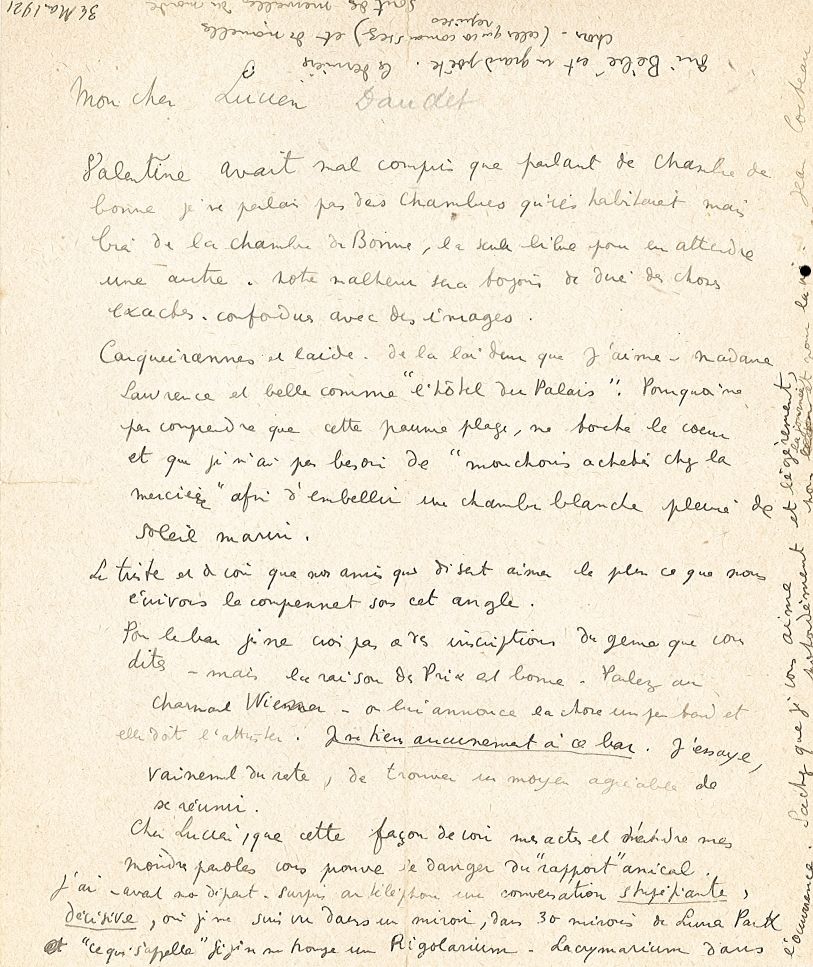 Mon cher Lucien Daudet
Valentine avait mal compris que parlant de chambre de
bonne je ne parlais pas des chambres qu'ils habitaient mais
de la chambre de Bonne, la seule libre pour en attendre
une autre. Notre malheur sera toujours de dire des choses
exactes. confondues avec des images.
Carqueirannes est laide. de la laideur que j'aime – madame
Lawrence est belle comme "l'hôtel du Palais". Pourquoi ne
pas comprendre que cette pauvre plage, me touche le coeur
et que je n'ai pas besoin de "mouchoirs achetés chez la
mercière" afin d'embellir une chambre blanche pleine de
soleil marin.
Le triste est de voir que nos amis qui disent aimer le plus ce que nous
écrivons le comprennent sous cet angle.
Pour le bar je ne crois pas à des inscriptions du genre que vous
dites – mais la raison de Prix est bonne. Parlez au
charmant Wiener – on lui annonce la chose un peu tard et
elle doit l'attrister. Je ne tiens aucunement à ce bar. J'essaye,
vainement du reste, de trouver un moyen agréable de
se réunir.
Cher Lucien, que cette façon de voir mes actes et d'entendre mes
moindres paroles vous prouve le danger du "rapport" amical.
J'ai – avant mon départ – surpris au téléphone une conversation stupéfiante,
décisive, où je me suis vu dans un miroir, dans 30 miroirs de Luna Park
et "ce qui s'appelle" si je ne me trompe un Rigolarium – Lacrymarium dans
l'occurrence. Sachez que je vous aime et légèrement,
profondément
Jean Cocteau
qui Bébé est un grand poète. la dernière
chose – (celles que vous connaissez) et de nouvelles
requises
sont des merveilles du monde
Mai 1921